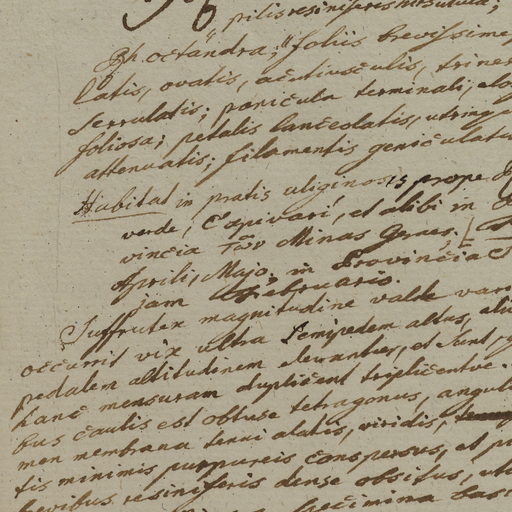 pilis resiniferis hirsutula;
Rh. octandra; foliis brevissime
latis, ovatis, acutiusculis, triner
serrulatis; panicula terminali, elo
foliosa; petalis lanceolatis, utrinq
attenuatis; filamentis geniculatis
Habitat in pratis uliginosis prope
verde, Capivari, et alibi in
vincia Minas Geraes;
Aprili, Majo; in Provincia S
jam Februario.
Suffrutex magnitudine valde vari
occurrit vix ultra semipedem altus, ali
pedalem altitudinem elevantur, et sunt, q
hanc mensuram duplicent triplicentve.
bus caulis est obtuse tetragonus, angul
men membrana tenui alatis, viridis,
tis minimis purpureis conspersus, et pi
brevibus resiniferis dense obsitus, ut
specimina bas